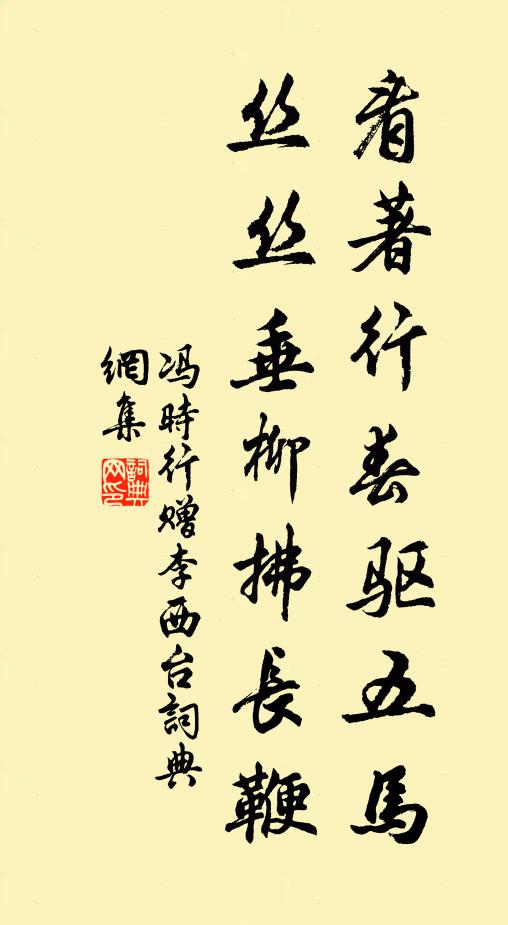 看著行春驱五馬
丝丝垂柳拂長鞭
冯時行赠李西台詞典
網集
詞典网印